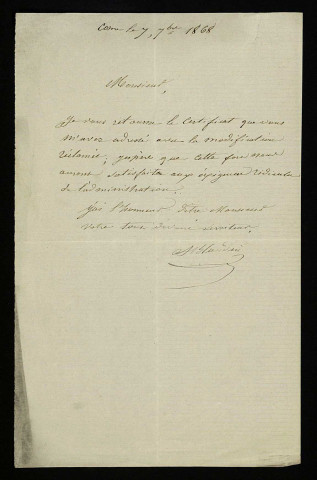 le 7, 7bre 1868
Monsieur,
Je vous retourne le certificat que vous
m'avez adressé avec la modification
réclamée, j'espère que cette fois nous
aurons satisfait aux exigences
de l'administration.
J'ai l'honneur d'être Monsieur
votre tout dévoué serviteur,